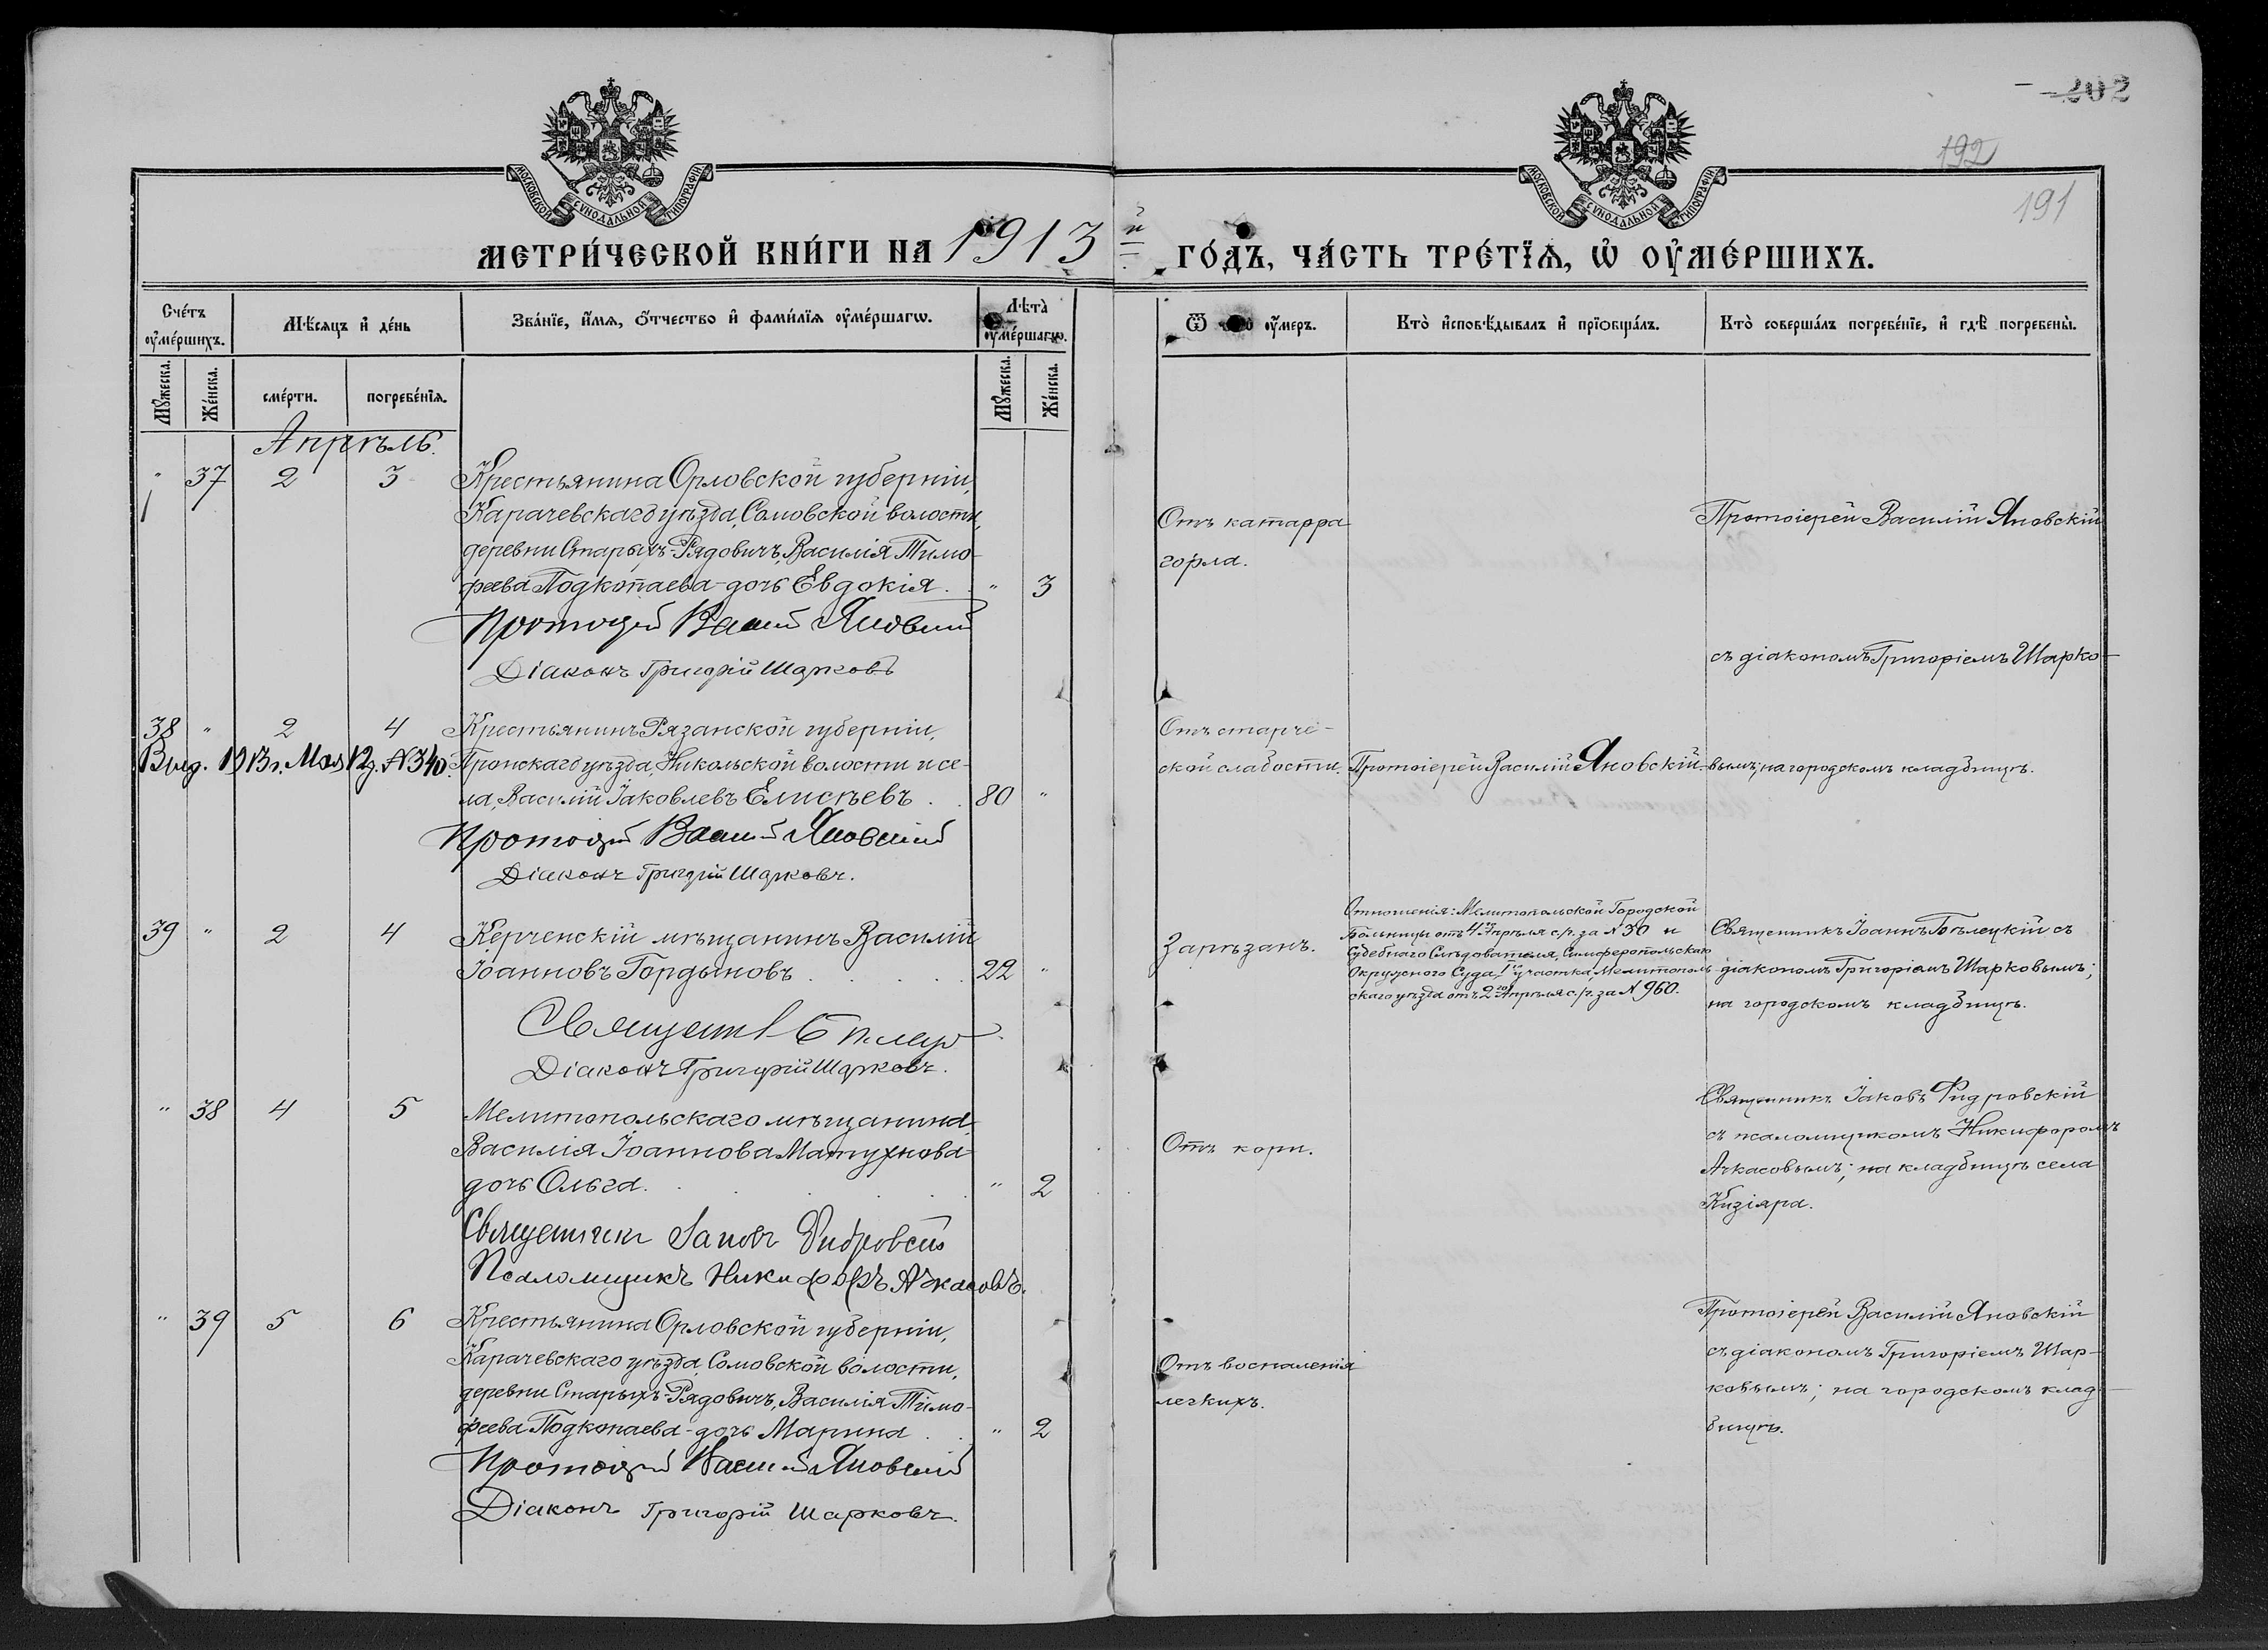 202
192
191
МОСКОВСКОЙ СѴНОДАЛЬНОЙ ТИПОГРАФІИ
МОСКОВСКОЙ СѴНОДАЛЬНОЙ ТИПОГРАФІИ
МЕТРИ́ЧЕСКОЙ КНИ́ГИ НА 1913 й ГО́ДЪ, ЧА́СТЬ ТРЕ́ТЇѦ, Ѡ҆ ОУ҆МЕ́РШИХЪ.
Сче́тъ оу҆ме́ршихъ.
Мѣ́сѧцъ и҆ де́нь
Зва́нїе, и҆́мѧ, ѻ҆́тчество и҆ фами́лїѧ оу҆ме́ршагѡ.
Лѣ́та оу҆ме́ршагѡ.
Ѿ чегѡ оу҆́меръ.
Кто̀ и҆сповѣ́дывалъ и҆ прїѡбща́лъ.
Кто̀ соверша́лъ погребе́нїе, и҆ гдѣ̀ погребены̀.
Мꙋ́жеска.
Же́нска.
сме́рти.
погребе́нїѧ.
Мꙋ́жеска.
Же́нска.
Апрѣль.
" 37 2 3 Крестьянина Орловской губерніи,
Карачевскаго уѣзда, Сомовской волости,
деревни Старыхъ-Рядовичъ, Василія Тимо-
феева Подкопаева-дочь Евдокія. " 3
Протоіерей Василій Яновскій
Діаконъ Григорій Шарковъ
Отъ катарра
горла.
Протоіерей Василій Яновскій
съ діакономъ Григоріемъ Шарко-
38 " 2 4 Крестьянинъ Рязанской губерніи,
Выд. 1913 г. Мая 12 д. № 340.
Пронскаго уѣзда, Никольской волости и се-
ла, Василій Іаковлевъ Елисѣевъ . . 80 "
Протоіерей Василій Яновскій
Діаконъ Григорій Шарковъ.
Отъ старче-
ской слабости.
Протоіерей Василій Яновскій
вымъ; на городскомъ кладбищѣ.
39 " 2 4 Керченскій мѣщанинъ Василій
Іоанновъ Гордыновъ . . . . 22 "
Священникъ
Діаконъ Григорій Шарковъ.
Зарѣзанъ.
Отношенія: Мелитопольской Городской
Больницы отъ 4 го Апрѣля с/г. за № 30 и
Судебнаго Слѣдователя, Симферопольскаго
Окружного Суда, 1 го участка Мелитополь-
скаго уѣзда отъ 2 го Апрѣля с/г. за № 960.
Священникъ Іоаннъ Бѣлецкій съ
діакономъ Григоріемъ Шарковымъ;
на городскомъ кладбищѣ.
" 38 4 5 Мелитопольскаго мѣщанина,
Василія Іоаннова Матухнова
дочь Ольга. . . . . " 2
Священникъ Іаковъ Фидровскій
Псаломщикъ Никифоръ Ачкасовъ.
Отъ кори.
Священникъ Іаковъ Фидровскій
съ псаломщикомъ Никифоромъ
Ачкасовымъ; на кладбищѣ села
Кизіяра.
" 39 5 6 Крестьянина Орловской губерніи,
Карачевскаго уѣзда, Сомовской волости,
деревни Старыхъ-Рядовичъ, Василія Тимо-
феева Подкопаева-дочь Марина . . " 2
Протоіерей Василій Яновскій
Діаконъ Григорій Шарковъ.
Отъ воспаленія
легкихъ.
Протоіерей Василій Яновскій
съ діакономъ Григоріемъ Шар-
ковымъ; на городскомъ клад-
бищѣ.